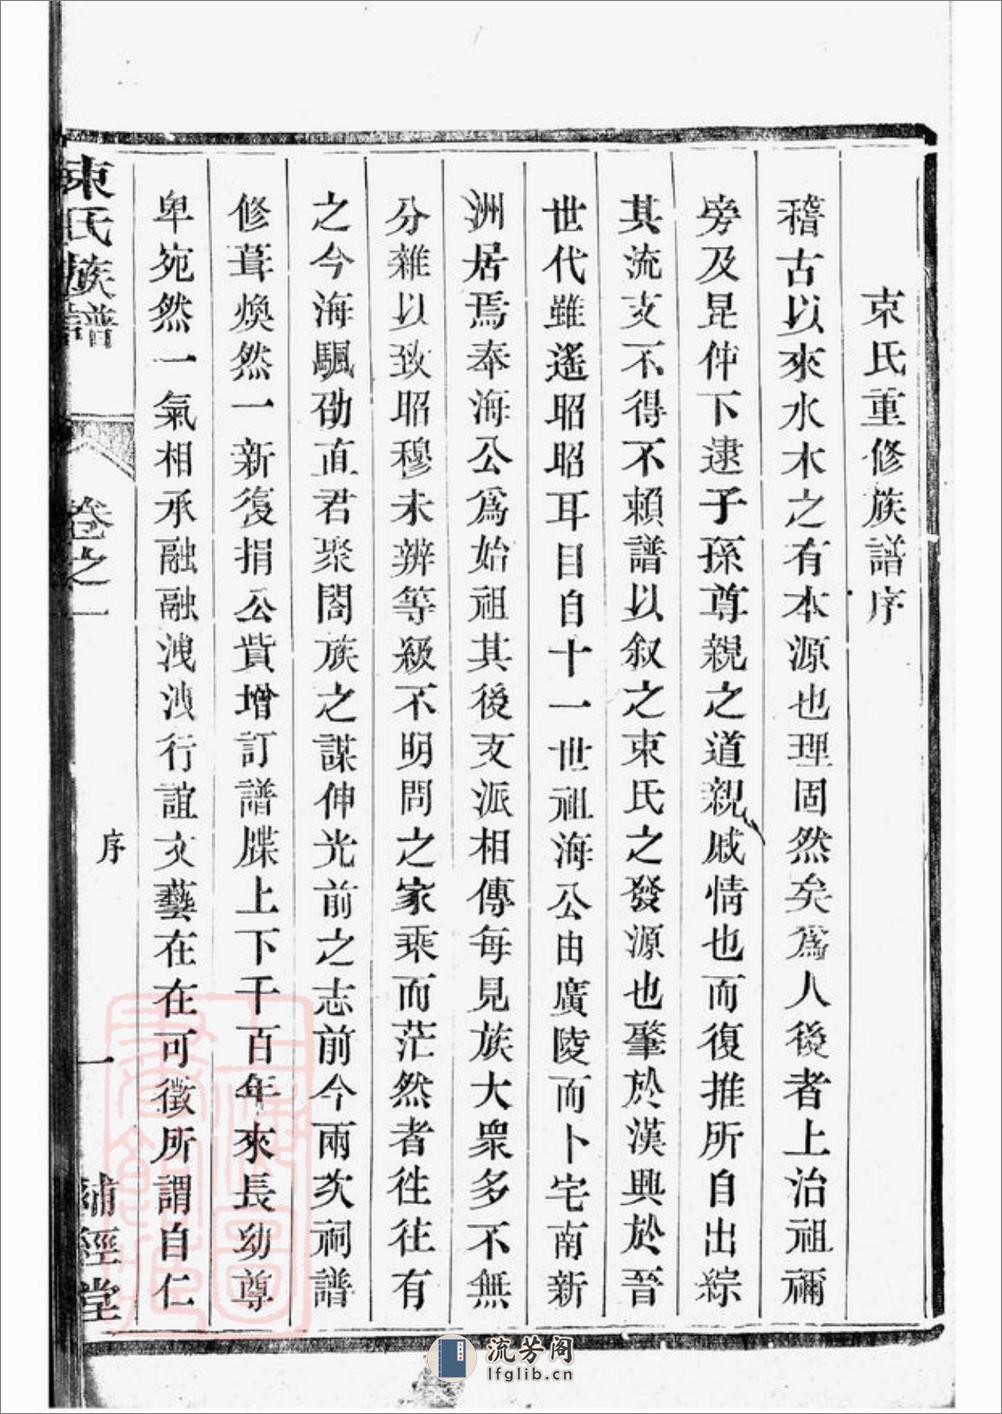 束氏重修族譜序
稽古以來水木之有本源也理固然矣爲人後者上治祖禰
旁及昆仲下逮子孫尊親之道親戚情也而復推所自出綜
其流支不得不賴譜以叙之束氏之發源也肇於漢興於晉
世代雖遙昭昭耳目自十一世祖海公由廣陵而卜宅南新
洲居焉奉海公爲始祖其後支派相傳每見族大衆多不無
分雜以致昭穆未辨等級不明問之家乘而茫然者徃徃有
之今海颿劭直君聚閤族之謀伸光前之志前今兩次祠譜
修葺煥然一新復捐公貲增訂譜牒上下千百年來長幼尊
卑宛然一氣相承融融洩洩行誼文藝在在可徵所謂自仁
束氏族譜 卷之一 序 一 補經堂
流芳阁
lfglib.cn